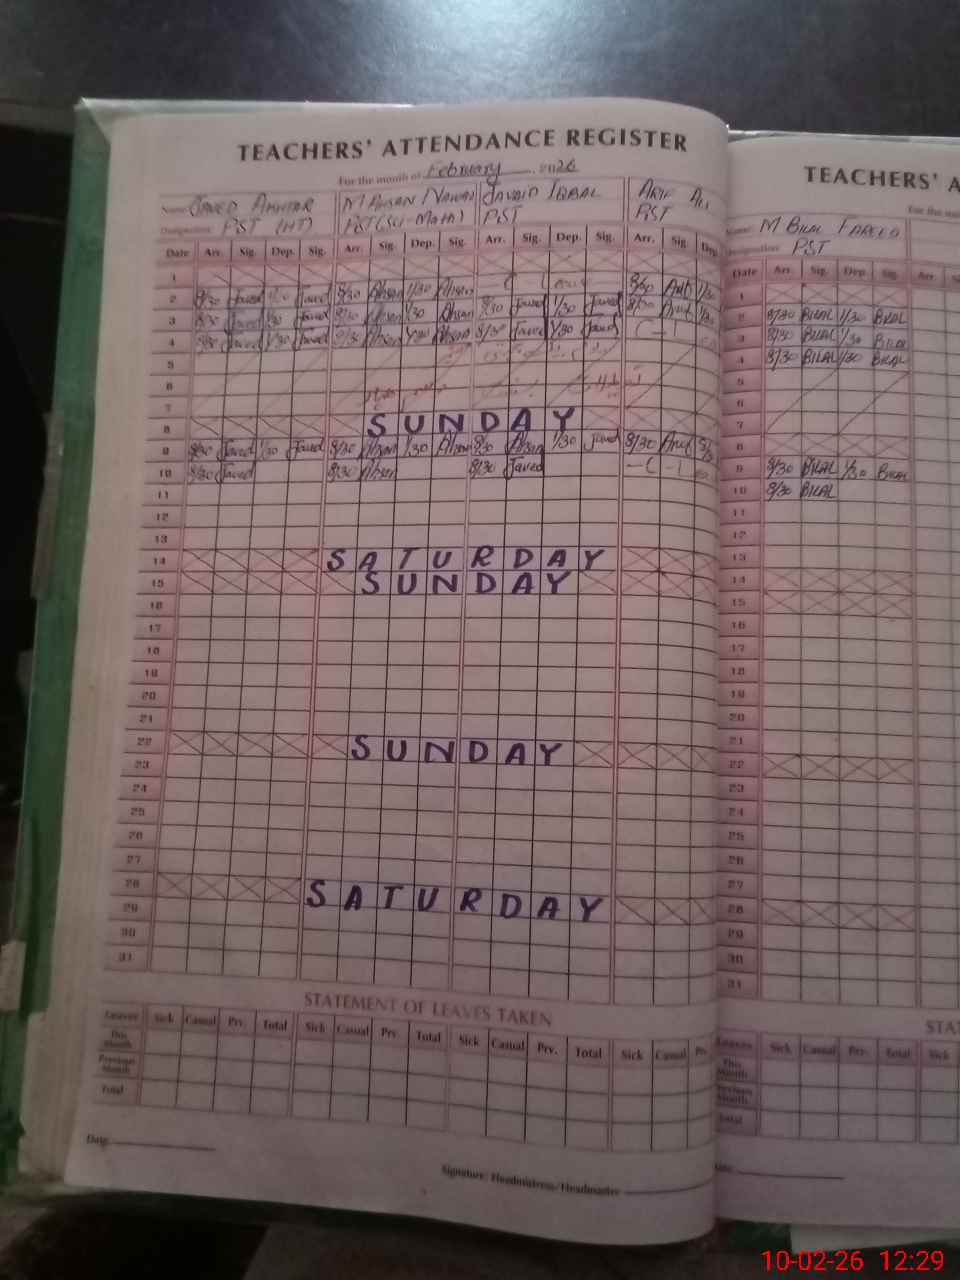 TEACHERS' ATTENDANCE REGISTER
For the month of February 2026
Name: JAVED AKHTAR M AHSAN NAWAZ JAVAID IQBAL ARIF ALI
Designation: PST (HT) PST (SCI-MATH) PST PST
Date Arr. Sig. Dep. Sig. Arr. Sig. Dep. Sig. Arr. Sig. Dep. Sig. Arr. Sig. Dep.
1
2 8/30 Javed 1/30 Javed 8/30 Ahsan 1/30 Ahsan 8/30 Arif 1/30
3 8/30 Javed 1/30 Javed 8/30 Ahsan 1/30 Ahsan 8/30 Javed 1/30 Javed 8/30 Arif 1/30
4 8/30 Javed 1/30 Javed 8/30 Ahsan 1/30 Ahsan 8/30 Javed 1/30 Javed
5
6
7
8 SUNDAY
9 8/30 Javed 1/30 Javed 8/30 Ahsan 1/30 Ahsan 8/30 Ahsan 1/30 Javed 8/30 Arif
10 8/30 Javed 8/30 Ahsan 8/30 Javed
11
12
13
14 SATURDAY
15 SUNDAY
16
17
18
19
20
21
22 SUNDAY
23
24
25
26
27
28 SATURDAY
29
30
31
STATEMENT OF LEAVES TAKEN
Leaves Sick Casual Prv. Total Sick Casual Prv. Total Sick Casual Prv. Total Sick Casual Prv.
This Month
Previous Month
Total
Date
Signature: Headmistress/Headmaster
TEACHERS' A
For the mo
Name: M BILAL FAREED
Designation: PST
Date Arr. Sig. Dep. Sig. Arr. Sig
1
2 8/30 BILAL 1/30 BILAL
3 8/30 BILAL 1/30 BILAL
4 8/30 BILAL 1/30 BILAL
5
6
7
8
9 8/30 BILAL 1/30 BILAL
10 8/30 BILAL
11
12
13
14
15
16
17
18
19
20
21
22
23
24
25
26
27
28
29
30
31
STA
Leaves Sick Casual Prv. Total Sick
This Month
Previous Month
Total
10-02-26 12:29